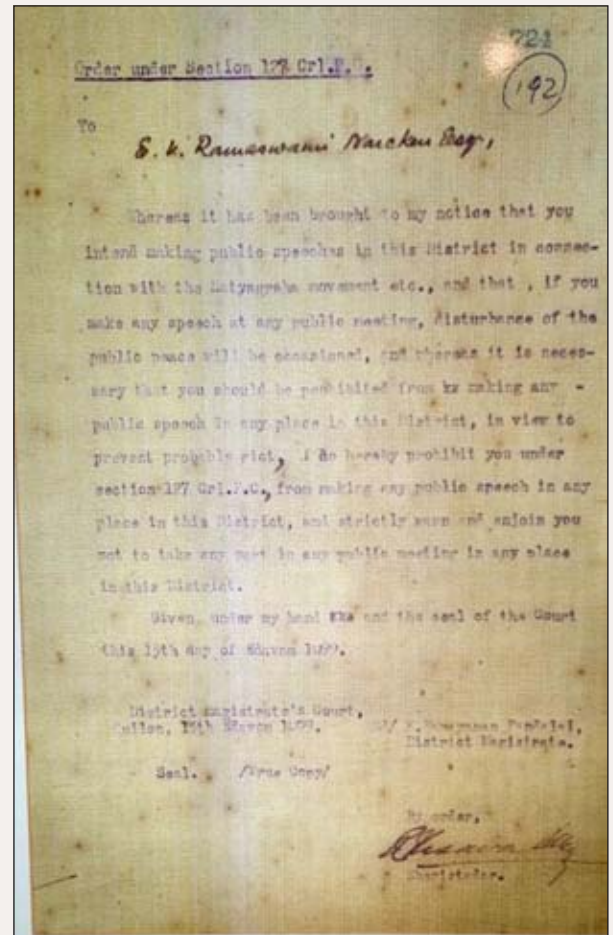 721
192
Order under Section 127 Crl.P.C.
To
E. V. Ramaswami Naicken Esqr,
Whereas it has been brought to my notice that you
intend making public speeches in this District in connec-
tion with the Satyagraha movement etc., and that , if you
make any speech at any public meeting, disturbance of the
public peace will be occasioned, and whereas it is neces-
sary that you should be prohibited from making any -
public speech in any place in this District, in view to
prevent probable riot, I do hereby prohibit you under
section 127 Crl.P.C., from making any public speech in any
place in this District, and strictly warn and enjoin you
not to take any part in any public meeting in any place
in this District.
Given, under my hand and the seal of the Court
this 15th day of 1099.
District Magistrate's Court,
Quilon, 15th 1099.
District Magistrate.
Seal. /True Copy/
By order,
Sheristadar.